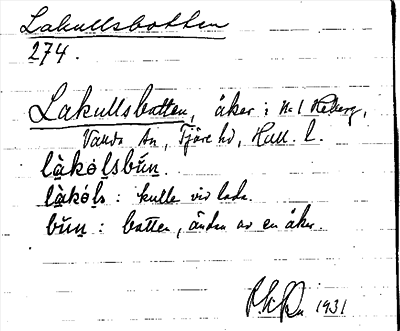 Lakullsbotten
274.
Lakullsbotten, åker i N:1 Heberg,
Vallda sn, Fjäre hd, Hall. l.
là̱kóḻsbŭn̲.
là̱kóḻs : kulle vid lada.
bŭn̲ : botten, ändan av en åker.
1931